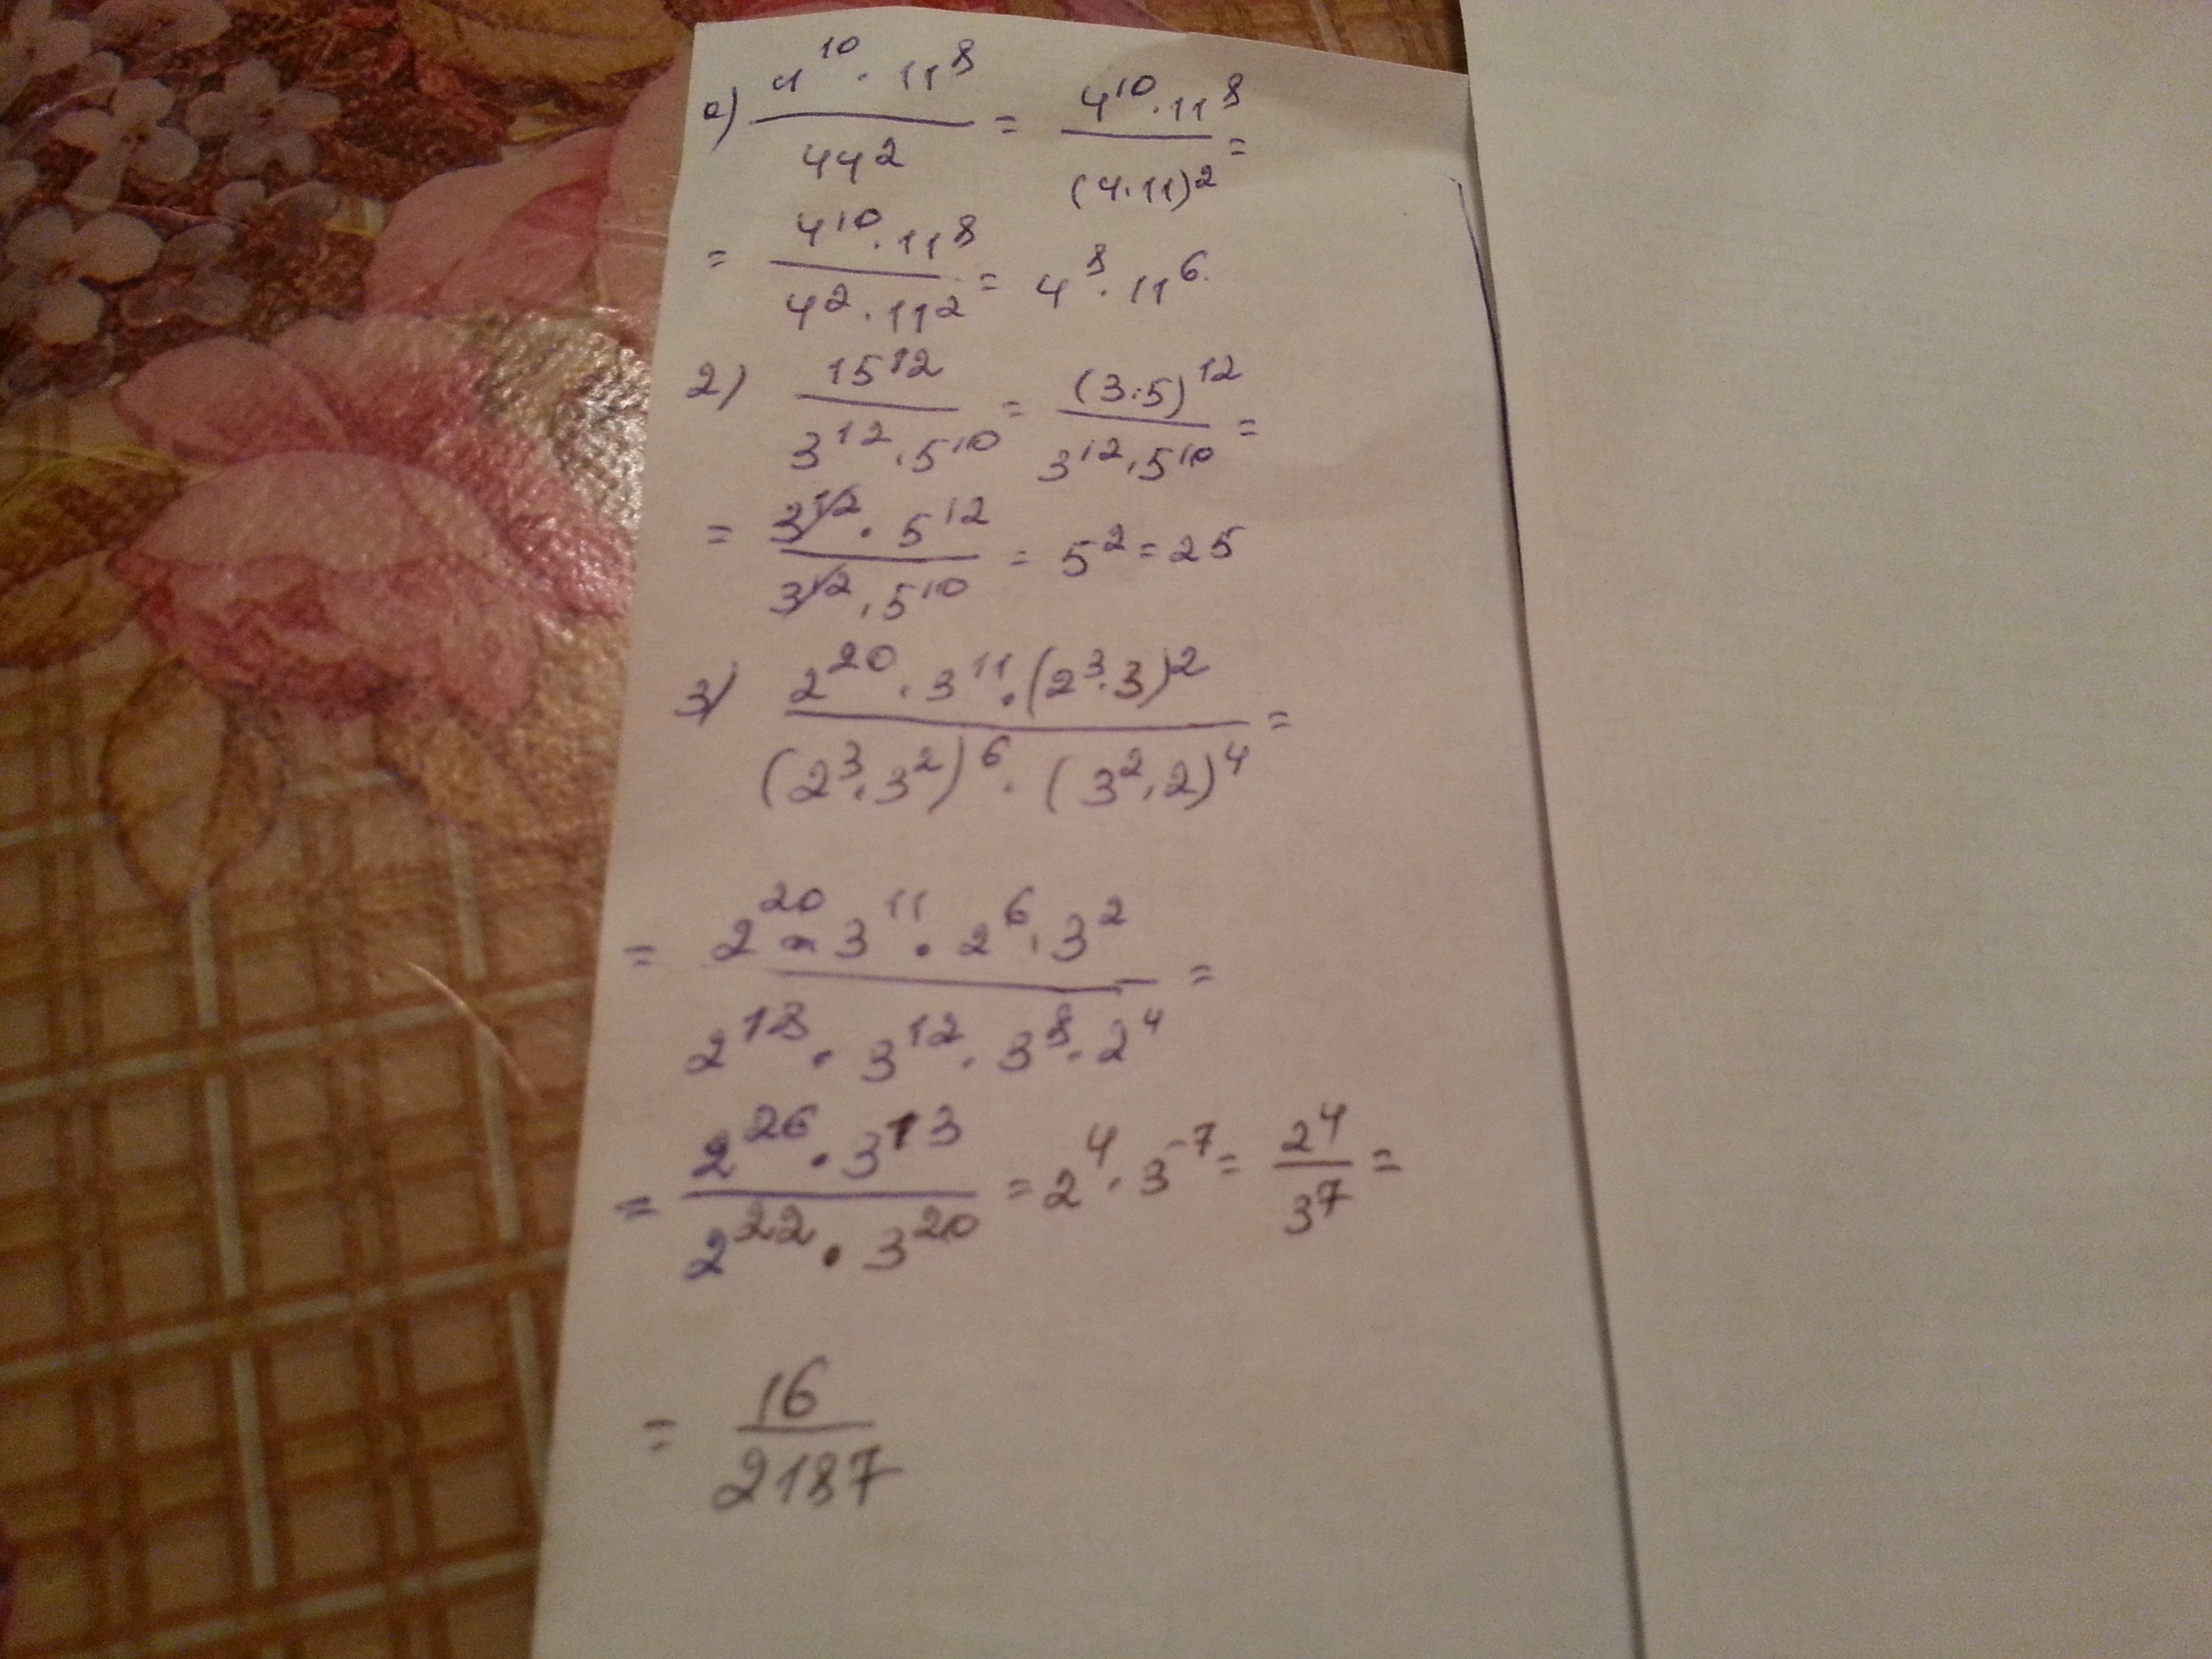 а) 4^10 · 11^8 / 44^2 = 4^10 · 11^8 / (4·11)^2 =
= 4^10 · 11^8 / 4^2 · 11^2 = 4^8 · 11^6.
2) 15^12 / 3^12 · 5^10 = (3·5)^12 / 3^12 · 5^10 =
= 3^12 · 5^12 / 3^12 · 5^10 = 5^2 = 25
3) 2^20 · 3^11 · (2^3 · 3)^2 / (2^3 · 3^2)^6 · (3^2 · 2)^4 =
= 2^20 · 3^11 · 2^6 · 3^2 / 2^18 · 3^12 · 3^8 · 2^4 =
= 2^26 · 3^13 / 2^22 · 3^20 = 2^4 · 3^-7 = 2^4 / 3^7 =
= 16 / 2187